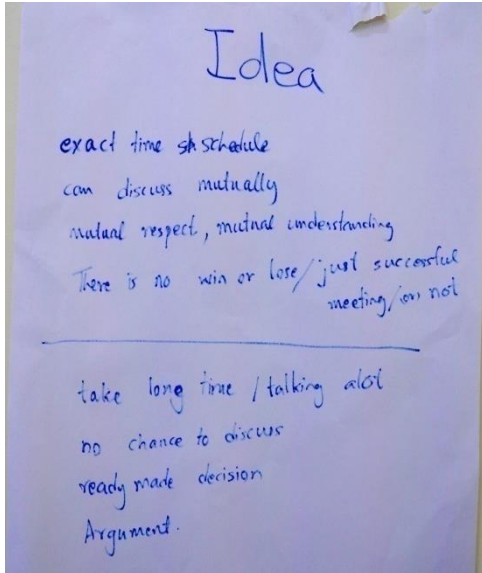 Idea
exact time sh schedule
can discuss mutually
mutual respect, mutual understanding
There is no win or lose/just successful
meeting/or not
take long time / talking alot
no chance to discuss
ready made decision
Argument.